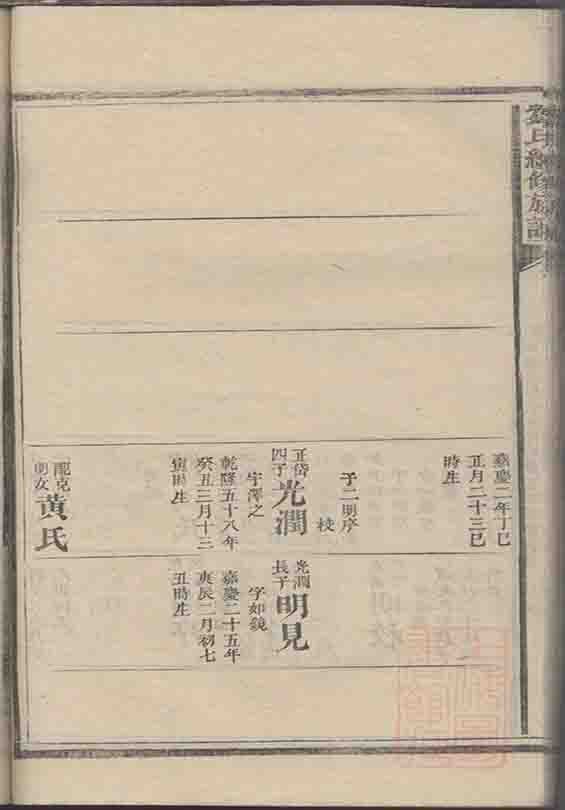 劉氏續修族譜
嘉慶二年丁巳
正月二十三巳
時生
子二明序
校
正岱
四子
光潤
字澤之
乾隆五十八年
癸丑三月十三
寅時生
龍克
明女
黃氏
光潤
長子
明見
字如鏡
嘉慶二十五年
庚辰二月初七
丑時生